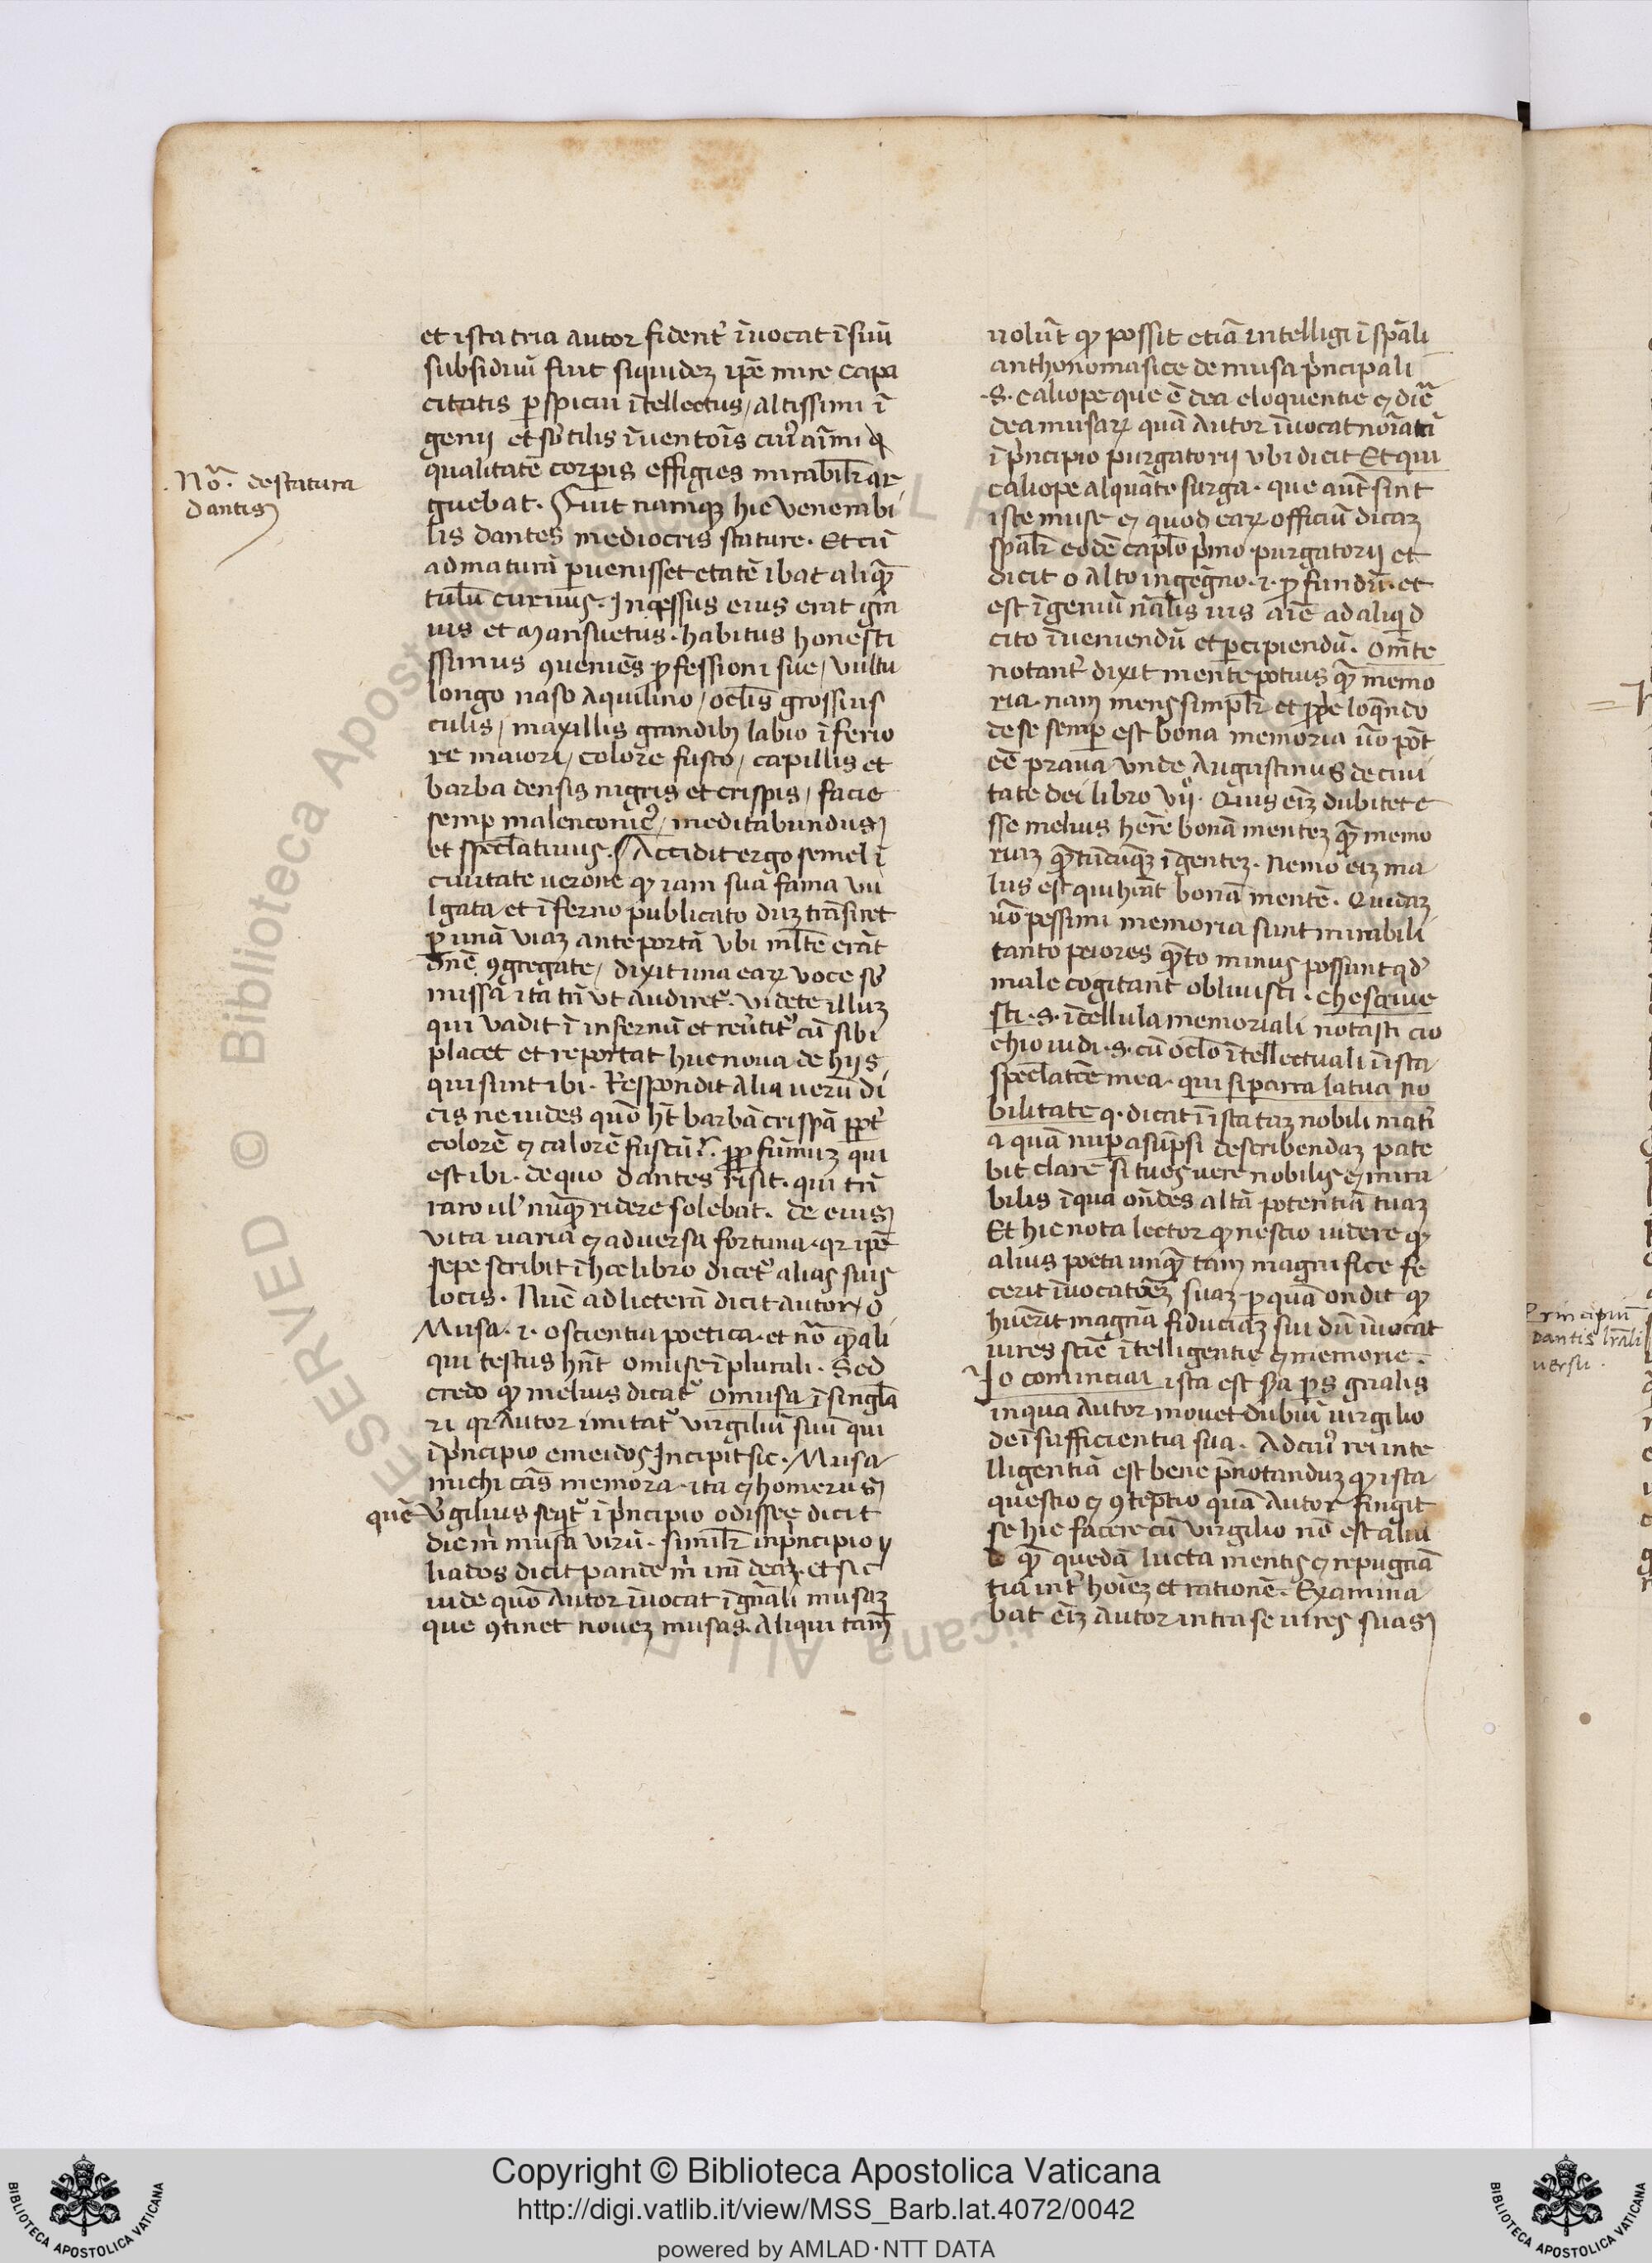 et ista tria autor fident᷑ ĩuocat ĩ suũ
subsidiũ fuit siquidez ip̃e mire capa
citatis p̱spicui ĩtellectus / altissimi ĩ
genij et sƀtilis ĩuentoĩs cui᷒ aĩmi
qualitatẽ corp̱is effigies mirabilr̃ ar
guebat. Fuit namqȝ hic venerabi
No.ᵃ de statura
dantis
lis dantes mediocris stature. Et cũ
ad maturã p̱uenisset etatẽ ibat aliqᷓ
tulũ curuus. Ingressus eius erat gra
uis et mansuetus. habitus honesti
ssimus ꝯueniẽs ꝓfessioni sue / vultu
longo naso aquilino / oclis̃ grossius
culis / maxillis grandibȝ labio ĩferio
re maiori / colore fusco / capillis et
barba densis nigris et crispis / facie
semp̱ malenconic᷒ / meditabundus
et specl̃atiuus. Accidit ergo semel ĩ
ciuitate uerone ꝙ iam sua fama vu
lgata et ĩferno publicato duz trãsiret
p̱ unã viaz ante portã vbi ml̃te erãt
dñe ꝯgregate / dixit una earꝝ voce sƀ
missa ita tñ vt audiret᷑. videte illuz
qui vadit ĩ infernũ et reũtit᷑ cũ sibi
placet et reportat huc noua de hijs
qui sunt ibi. Respondit alia uerũ di
cis ne uides quõ ht̃ barbã crispã ꝓpt᷑
colorẽ ⁊ calorẽ fuscũ. ꝓp fumuz qui
est ibi. de quo dantes risit. qui tñ
raro ul᷑ nũqᷓ ridere solebat. de eius
vita uaria ⁊ aduersa fortuna. qr ip̃e
sepe scribit ĩ hoc libro dicet᷑ alias suis
locis. Nũc ad licterã dicit autor o
Musa. i. o scientia poetica. et nõ qᷓ ali
qui testus hñt o muse ĩ plurali. Sed
credo ꝙ melius dicat᷑ o musa ĩ singl̃a
ri qr autor imitat᷑ virgiliũ suũ qui
ĩ prĩcipio eneidos Incipit sic. Musa
michi cãs memora. ita ⁊ homerus
quẽ v᷑gilius seqt᷑ ĩ prĩcipio odissee dicit
dic m̃ musa virũ. similr̃ in prĩcipio y
liados dicit pande m̃ irã dea. et sic
uide quõ autor ĩuocat ĩ gñali musaz
que ꝯtinet nouez musas. aliqui tam̃
uolũt ꝙ possit etiã intelligi ĩ spãli
anthonomasice de musa prĩcipali
.s. caliope que ẽ dea eloquentie ⁊ dic̃
dea musarꝝ quã autor ĩuocat noĩatĩ
ĩ prĩcipio purgatorij vbi dicit Et qui
caliope alquãte surga. que aut̃ sint
iste muse ⁊ quod earꝝ officiũ dicaz
spãlr eodẽ capl̃o pĩmo purgatorij et
dicit o alto ingegno. i. ꝓfundũ. et
est ĩgeniũ nãlis uis aĩe ad aliqd
cito ĩueniendũ et p̱cipiendũ. O m̃te
notant᷑ dixit mente potius qᷓ memo
ria. nam mens simplr̃ et ꝓpe loqñdo
de se semp̱ est bona memoria ũo pot̃
eẽ praua vnde Augustinus de ciui
tate dei libro vij°. Quis eĩz dubitet e
sse melius her̃e bonã mentez qᷓ memo
riaz qᷓtũcũqȝ ĩgentez. Nemo eĩz ma
lus est qui hẽat bonã mentẽ. Quidaz
ũo pessimi memoria sunt mirabili
tanto peiores qᷓto minus possunt qd̾
male cogitant obliuisci. che scriue
sti. s. ĩ cellula memoriali notasti cio
chio uidi. s. cũ oclo ĩtellectuali ĩ ista
specl̃atõe mea. qui si parra la tua no
bilitate q. dicat ĩ ista taz nobili mat᷑i
a quã nup̱ asũpsi describendaz pate
bit clare si tu es uere nobilis ⁊ mira
bilis ĩ qua oñdes altã potentiã tuaz
Et hic nota lector ꝙ nescio uidere ꝙ
alius poeta unqᷓ tam magnifice fe
cerit ĩuocatõez suaz p̱ quã oñdit ꝙ
hũerit magnã fiduciaz sui dũ ĩuocat
uires scĩe ĩtelligentie ⁊ memorie.
Io cominciai ista est sƀa ps̱ gñalis
in qua autor mouet dubiũ uirgilio
de ĩsufficientia sua. Ad cui᷒ rei inte
lligentiã est bene pr̃notanduz ꝙ ista
questio ⁊ ꝯtẽptio quã autor fingit
se hic facere cũ virgilio nõ est aliu
d qᷓ quedã lucta mentis ⁊ repugnã
tia int᷑ hoĩez et rationẽ. Examina
bat eĩz autor intra se uires suas
Principiũ
Dantis l̃rali
versu.
Copyright © Biblioteca Apostolica Vaticana
http://digi.vatlib.it/view/MSS_Barb.lat.4072/0042
powered by AMLAD·NTT DATA
BIBLIOTECA APOSTOLICA VATICANA
BIBLIOTECA APOSTOLICA VATICANA